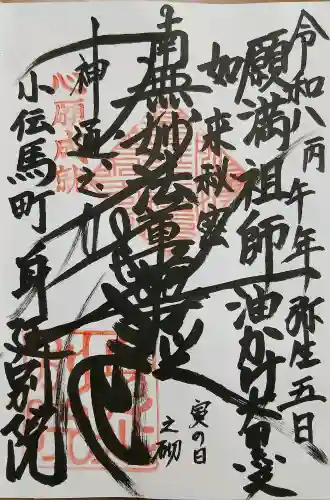 令和八丙午年弥生五日
願満祖師 油かけ大黒天
如来秘密
南無妙法蓮華経
神通之力
寅の日
之砌
小伝馬町 身延別院
心願成就